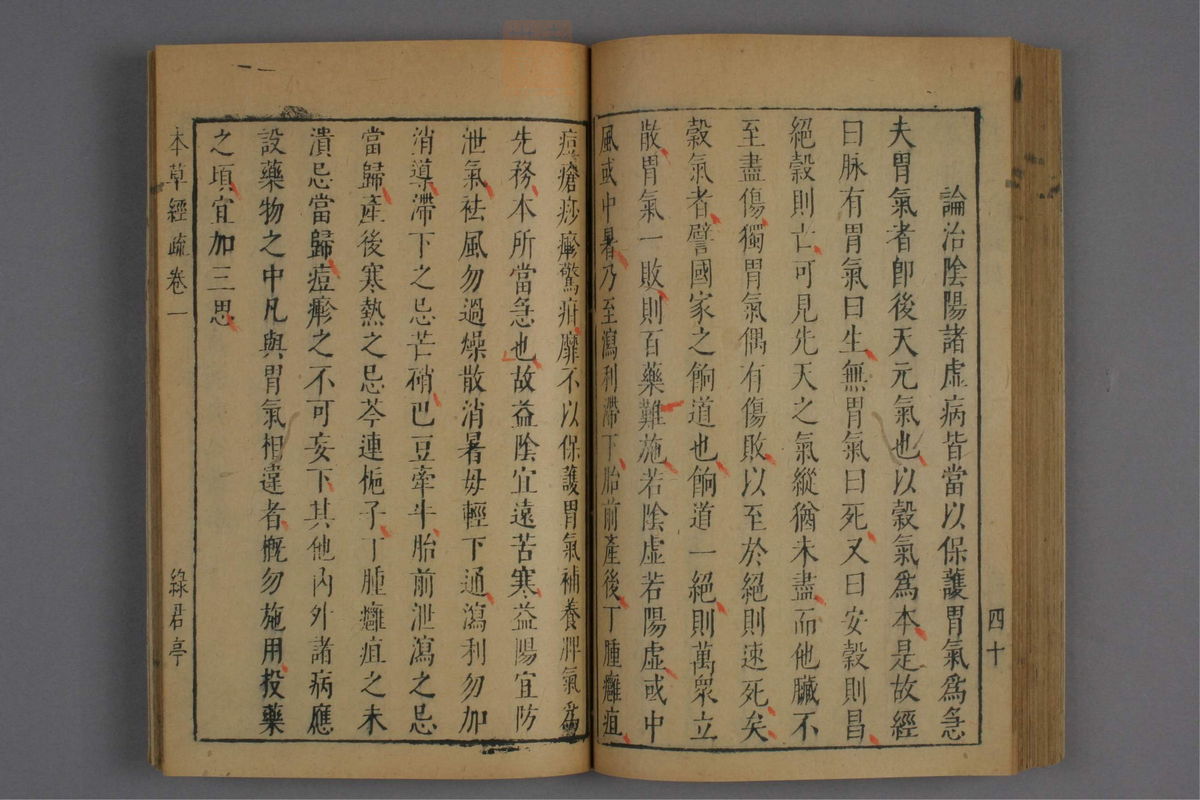 四十
論治陰陽諸虛病皆當以保護胃氣為急
夫胃氣者卽後天元氣也以穀氣為本是故經
曰脉有胃氣曰生無胃氣曰死又曰安穀則昌
絕穀則亡可見先天之氣縱猶未盡而他臟不
至盡傷獨胃氣偶有傷敗以至於絕則速死矣
穀氣者譬國家之餉道也餉道一絕則萬眾立
散胃氣一敗則百藥難施若陰虛若陽虛或中
風或中暑乃至瀉利滯下胎前產後丁腫癰疽
痘瘡痧疹驚疳靡不以保護胃氣補養脾氣為
先務本所當急也故益陰宜遠苦寒益陽宜防
泄氣祛風勿過燥散消暑毋輕下通瀉利勿加
消導滯下之忌芒硝巴豆牽牛胎前泄瀉之忌
當歸產後寒熱之忌芩連梔子丁腫癰疽之未
潰忌當歸痘疹之不可妄下其他內外諸病應
設藥物之中凡與胃氣相違者概勿施用投藥
之頃宜加三思
本草經疏卷一
綠君亭